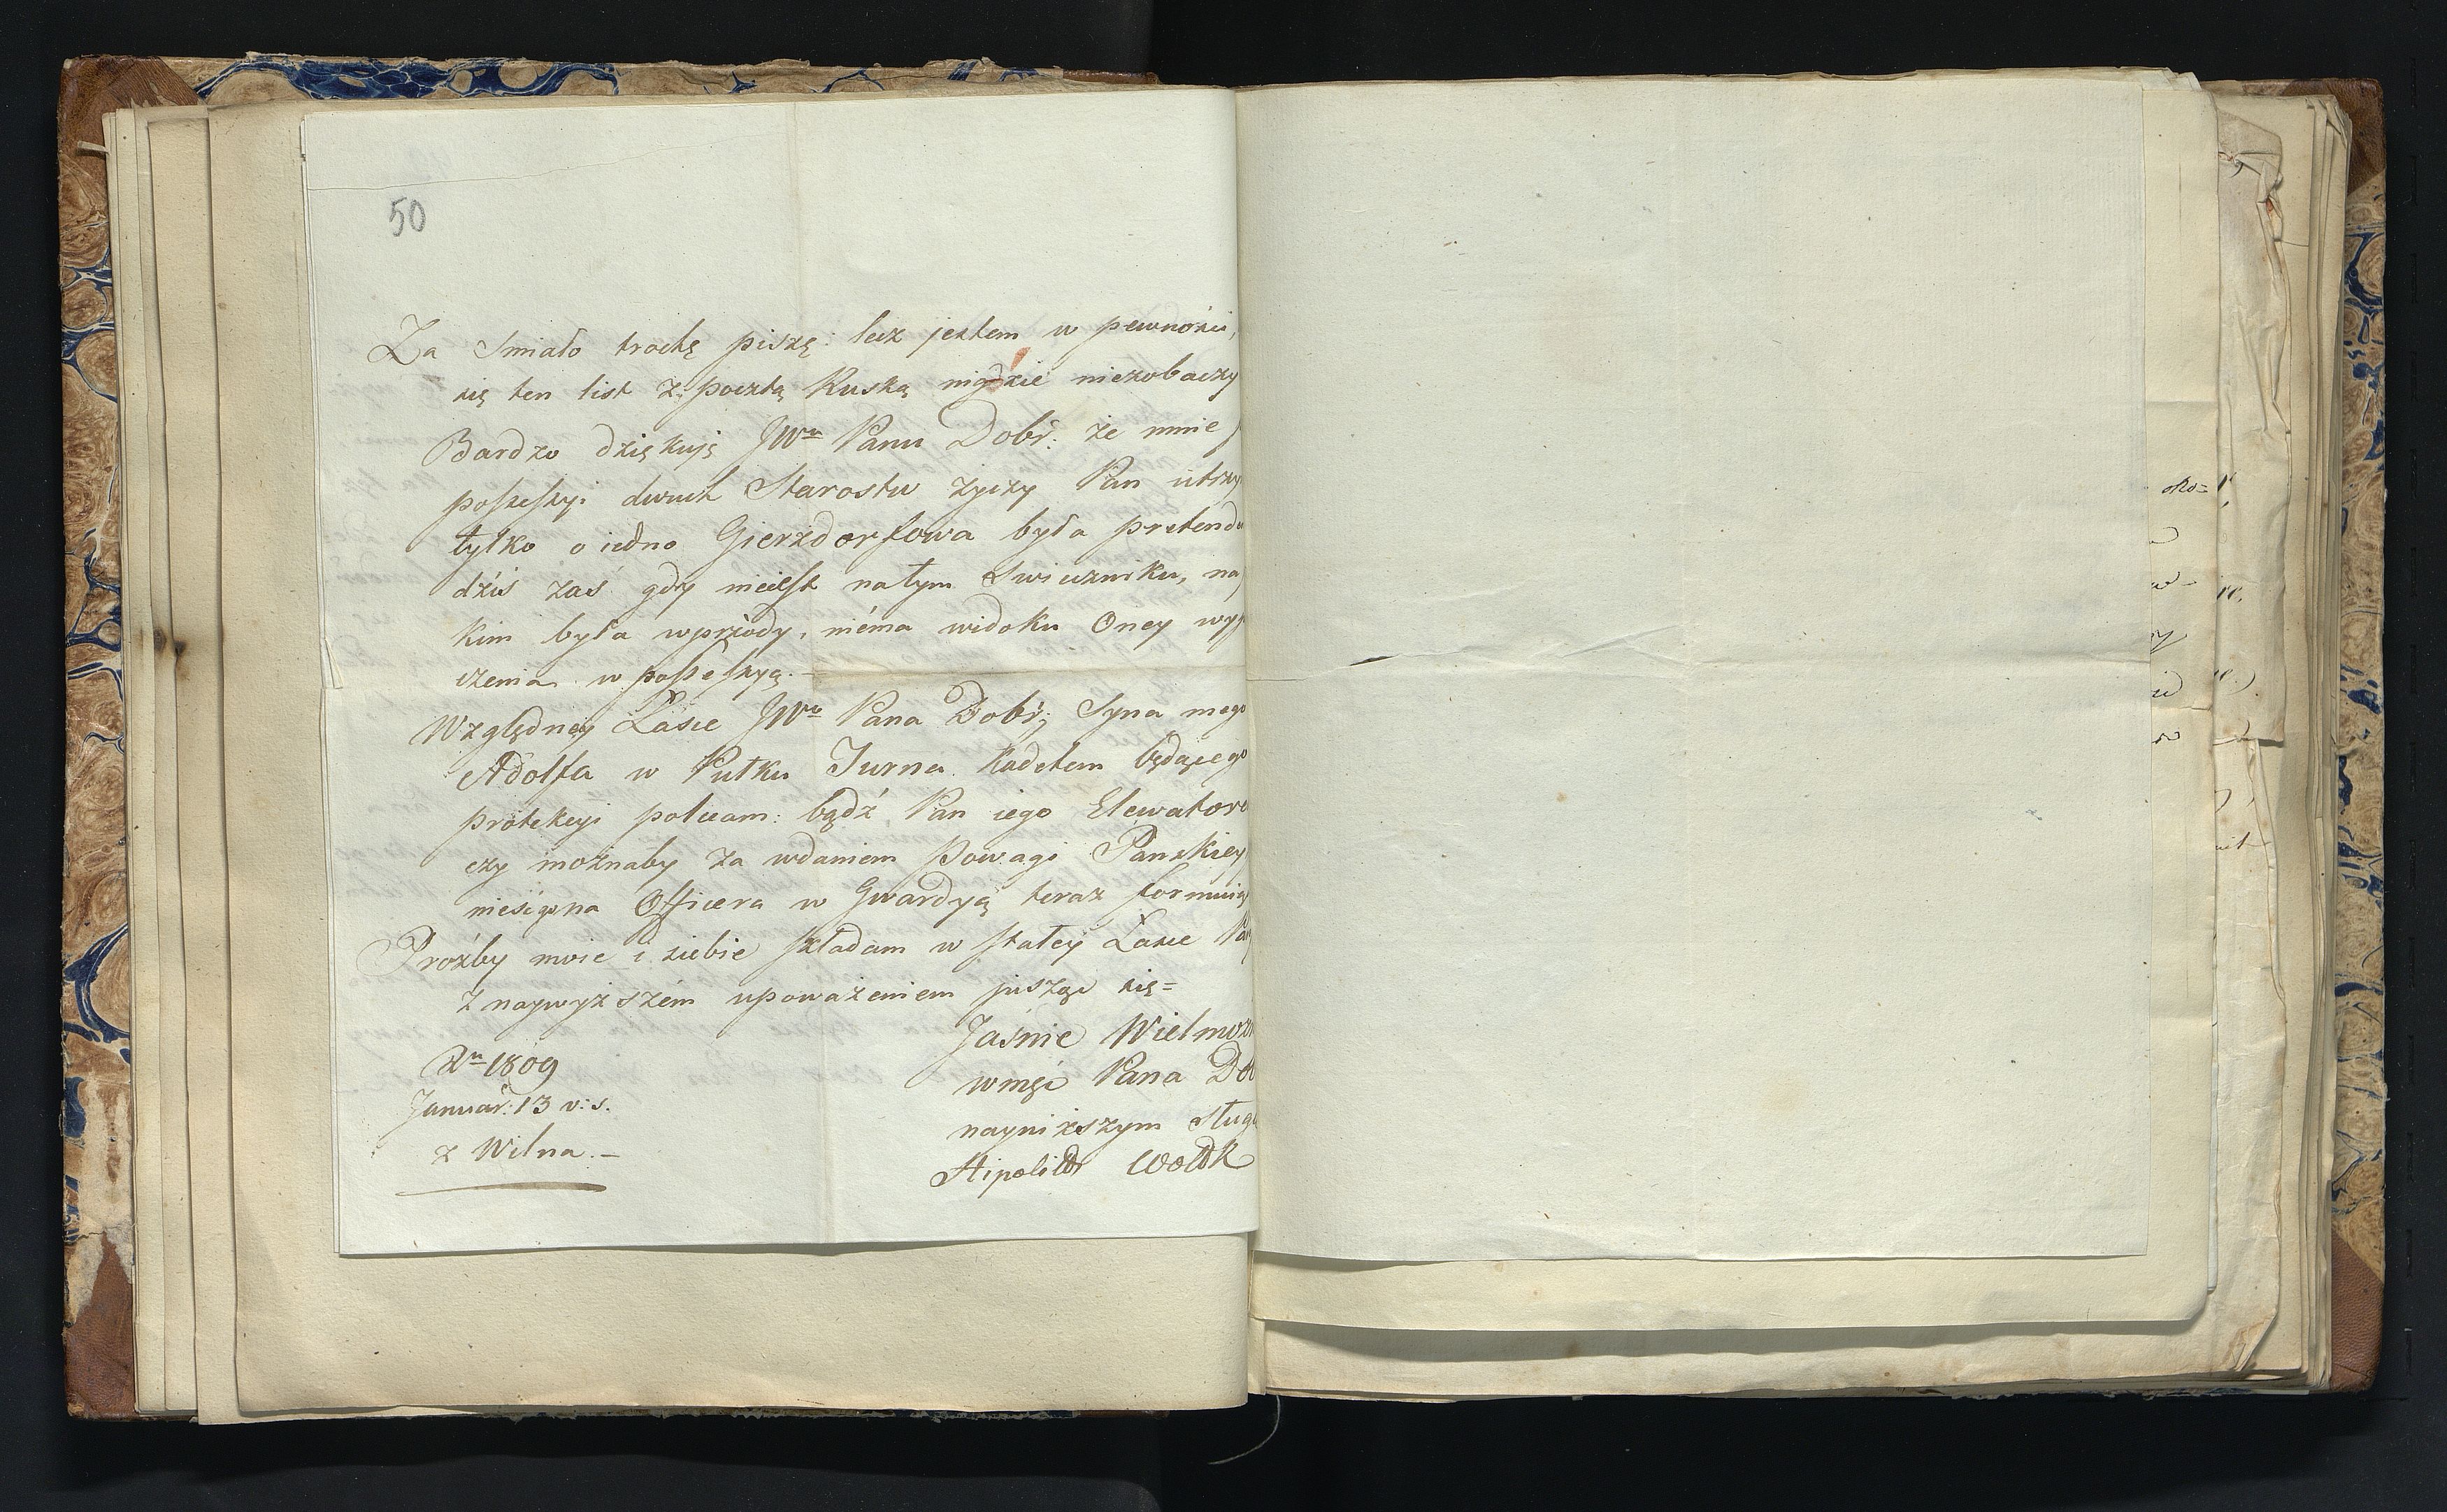 50
Za smiało trochę piszę: lecz jestem w pewności,
się ten list z. pocztą Ruską nigdzie niezobaczy
Bardzo dziękuję JWu Panu Dobr: że mnie
possessyi dwuch Starostw życzy Pan utrzy
tylko o iedno Gierzdorfowa była pretendu
dziś zaś gdy nieiest natym Swieczniku, na
kim była wprzódy, niéma widoku Oney wyj
czenia w possessyą.-
Względney Łasce JWu Pana Dobr; Syna mego
Adolfa w Pułku Turna Kadetem będącego
protekcyi polecam: bądź Pan iego Elewatore
czy możnaby za wdaniem Powagi Panskiey
nieśígo na Officera w Gwardyą teraz formuią
Proźby moie i siebie składam w stałey Łasce Pa
z naywyższém upoważeniem pisząc się=
Jaśnie Wielmoz
wmści Pana Do
nayniższym Sług
Hipolit
Rn 1809
Januar: 13 v: s.
z Wilna.-
oko=